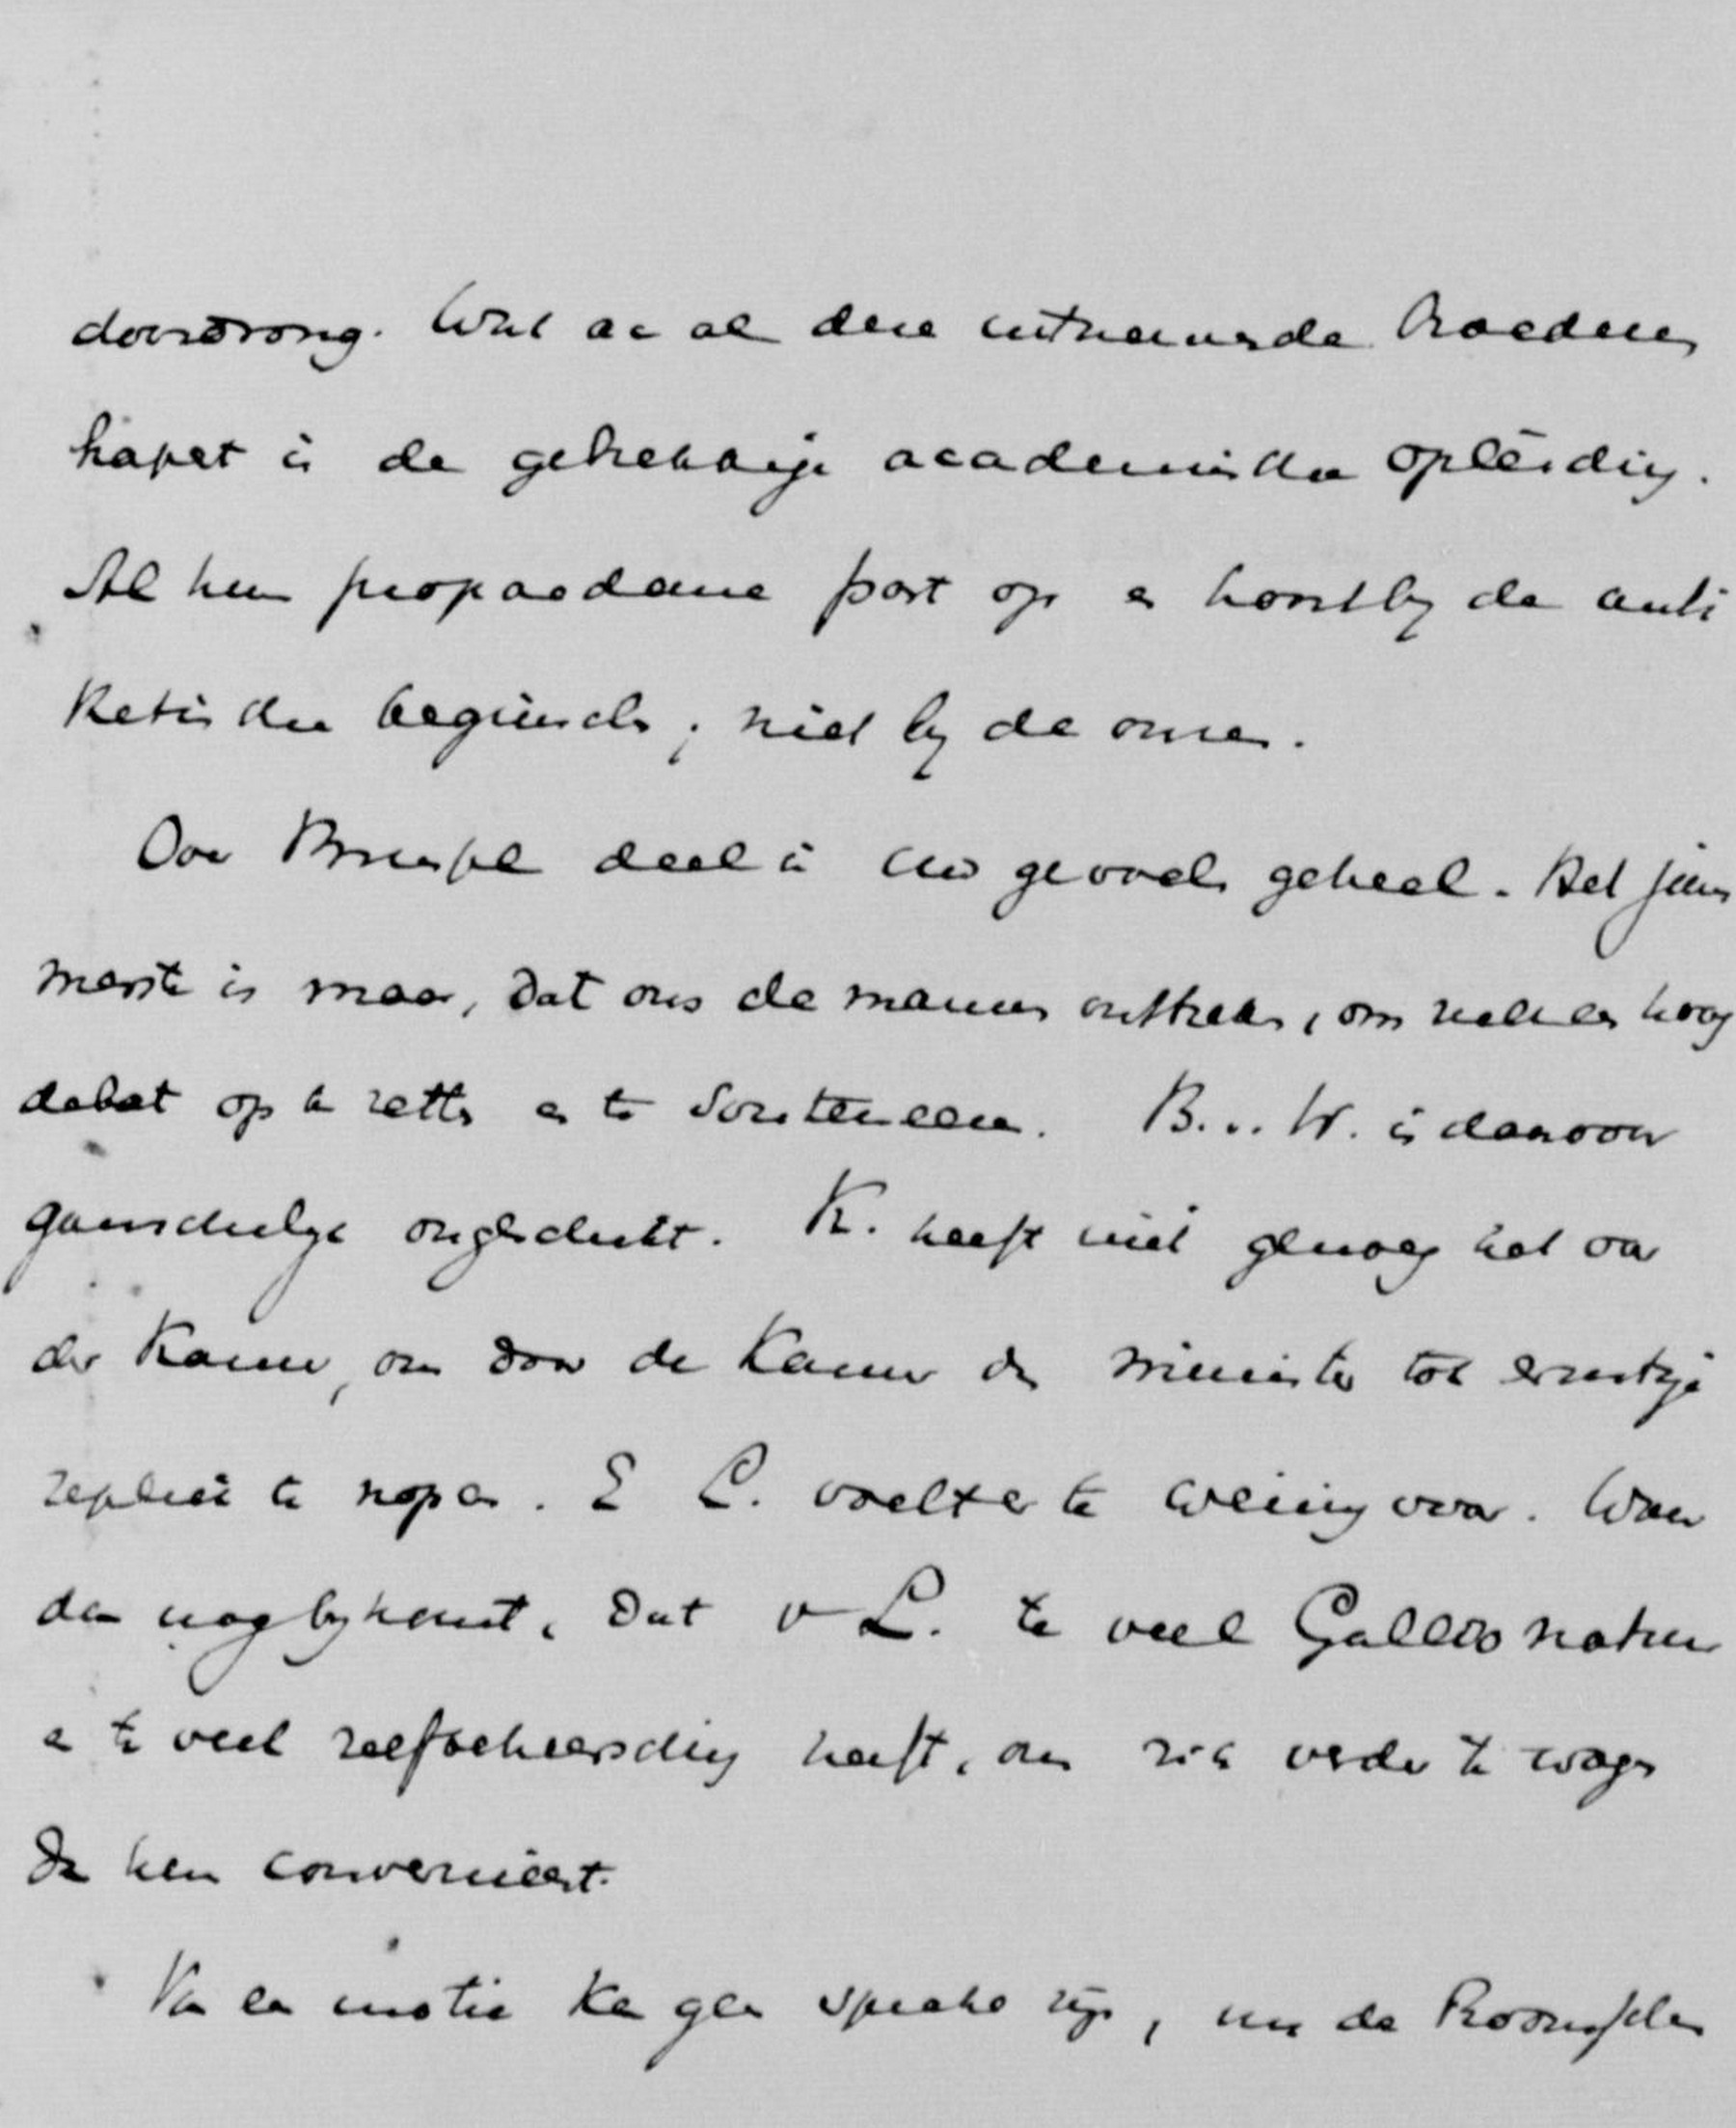 doordrong. Wat aan al deze uitnemende broeders
hapert is de gebrekkige academische opleiding.
Al hun propaedeuse past op en hoort bij de anti
Ketische beginsels; niet bij de onze.
Over Brussel deel ik uw gevoelen geheel. Het jam
merste is maar, dat ons de mannen ontbreken, om zulk een hoog
debat op te zetten en te souteneeren. B. v. W. is daarvoor
ganschelijk ongeschikt. K. heeft niet genoeg het oor
der Kamer, om door de Kamer den minister tot ernstige
repliek te nopen. E L. voelt er te weinig voor. Waar
dan nog bijkomt, dat v L. te veel Gallio natuur
en te veel zelfbeheersching heeft, om zich verder te wagen
dan hem convenieert.
Van een motie kan geen sprake zijn, nu de Roomschen